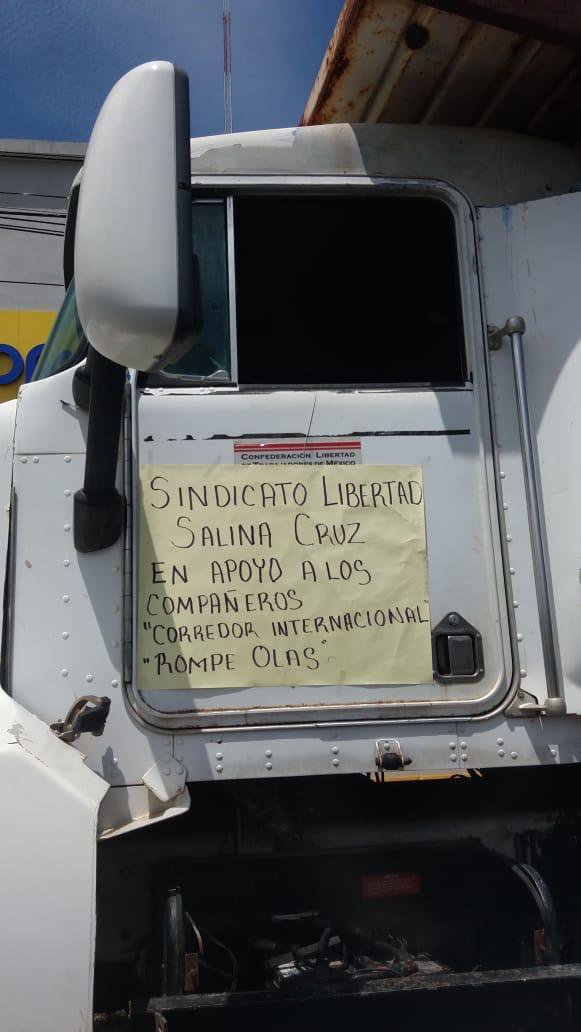 CONFEDERACIÓN LIBERTAD
DE TRABAJADORES DE MÉXICO
SINDICATO LIBERTAD
SALINA CRUZ
EN APOYO A LOS
COMPAÑEROS
"CORREDOR INTERNACIONAL
"ROMPE OLAS"